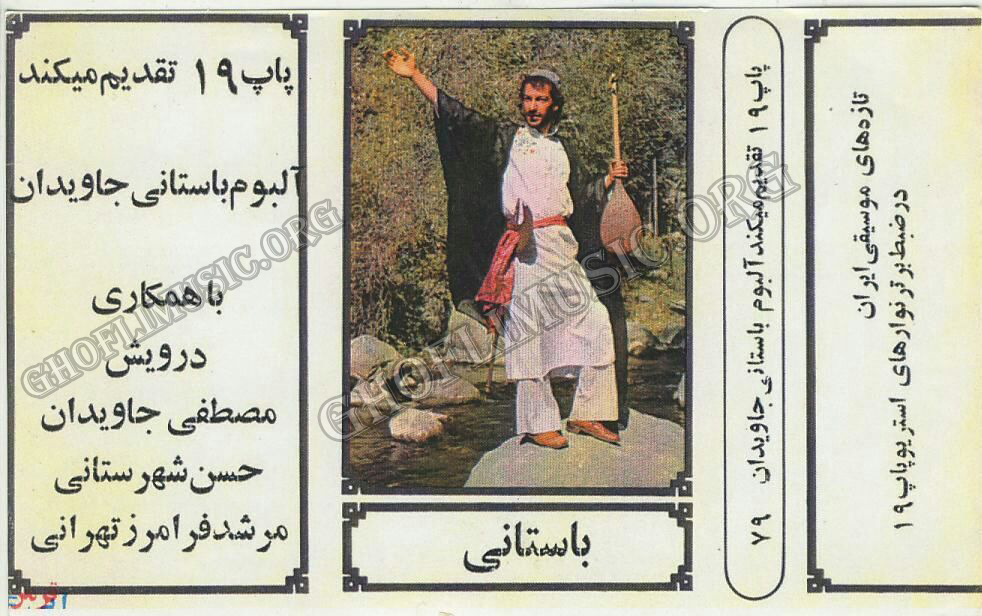 پاپ ۱۹ تقدیم میکند
آلبوم باستانی جاویدان
با همکاری
درویش
مصطفی جاویدان
حسن شهرستانی
مرشد فرامرز تهرانی
باستانی
پاپ ۱۹ تقدیم میکند آلبوم باستانی جاویدان ۷۹
تازه‌های موسیقی ایران
در ضبط برتر نوارهای استریو پاپ ۱۹
GHOFLIMUSIC.ORG
GHOFLIMUSIC.ORG